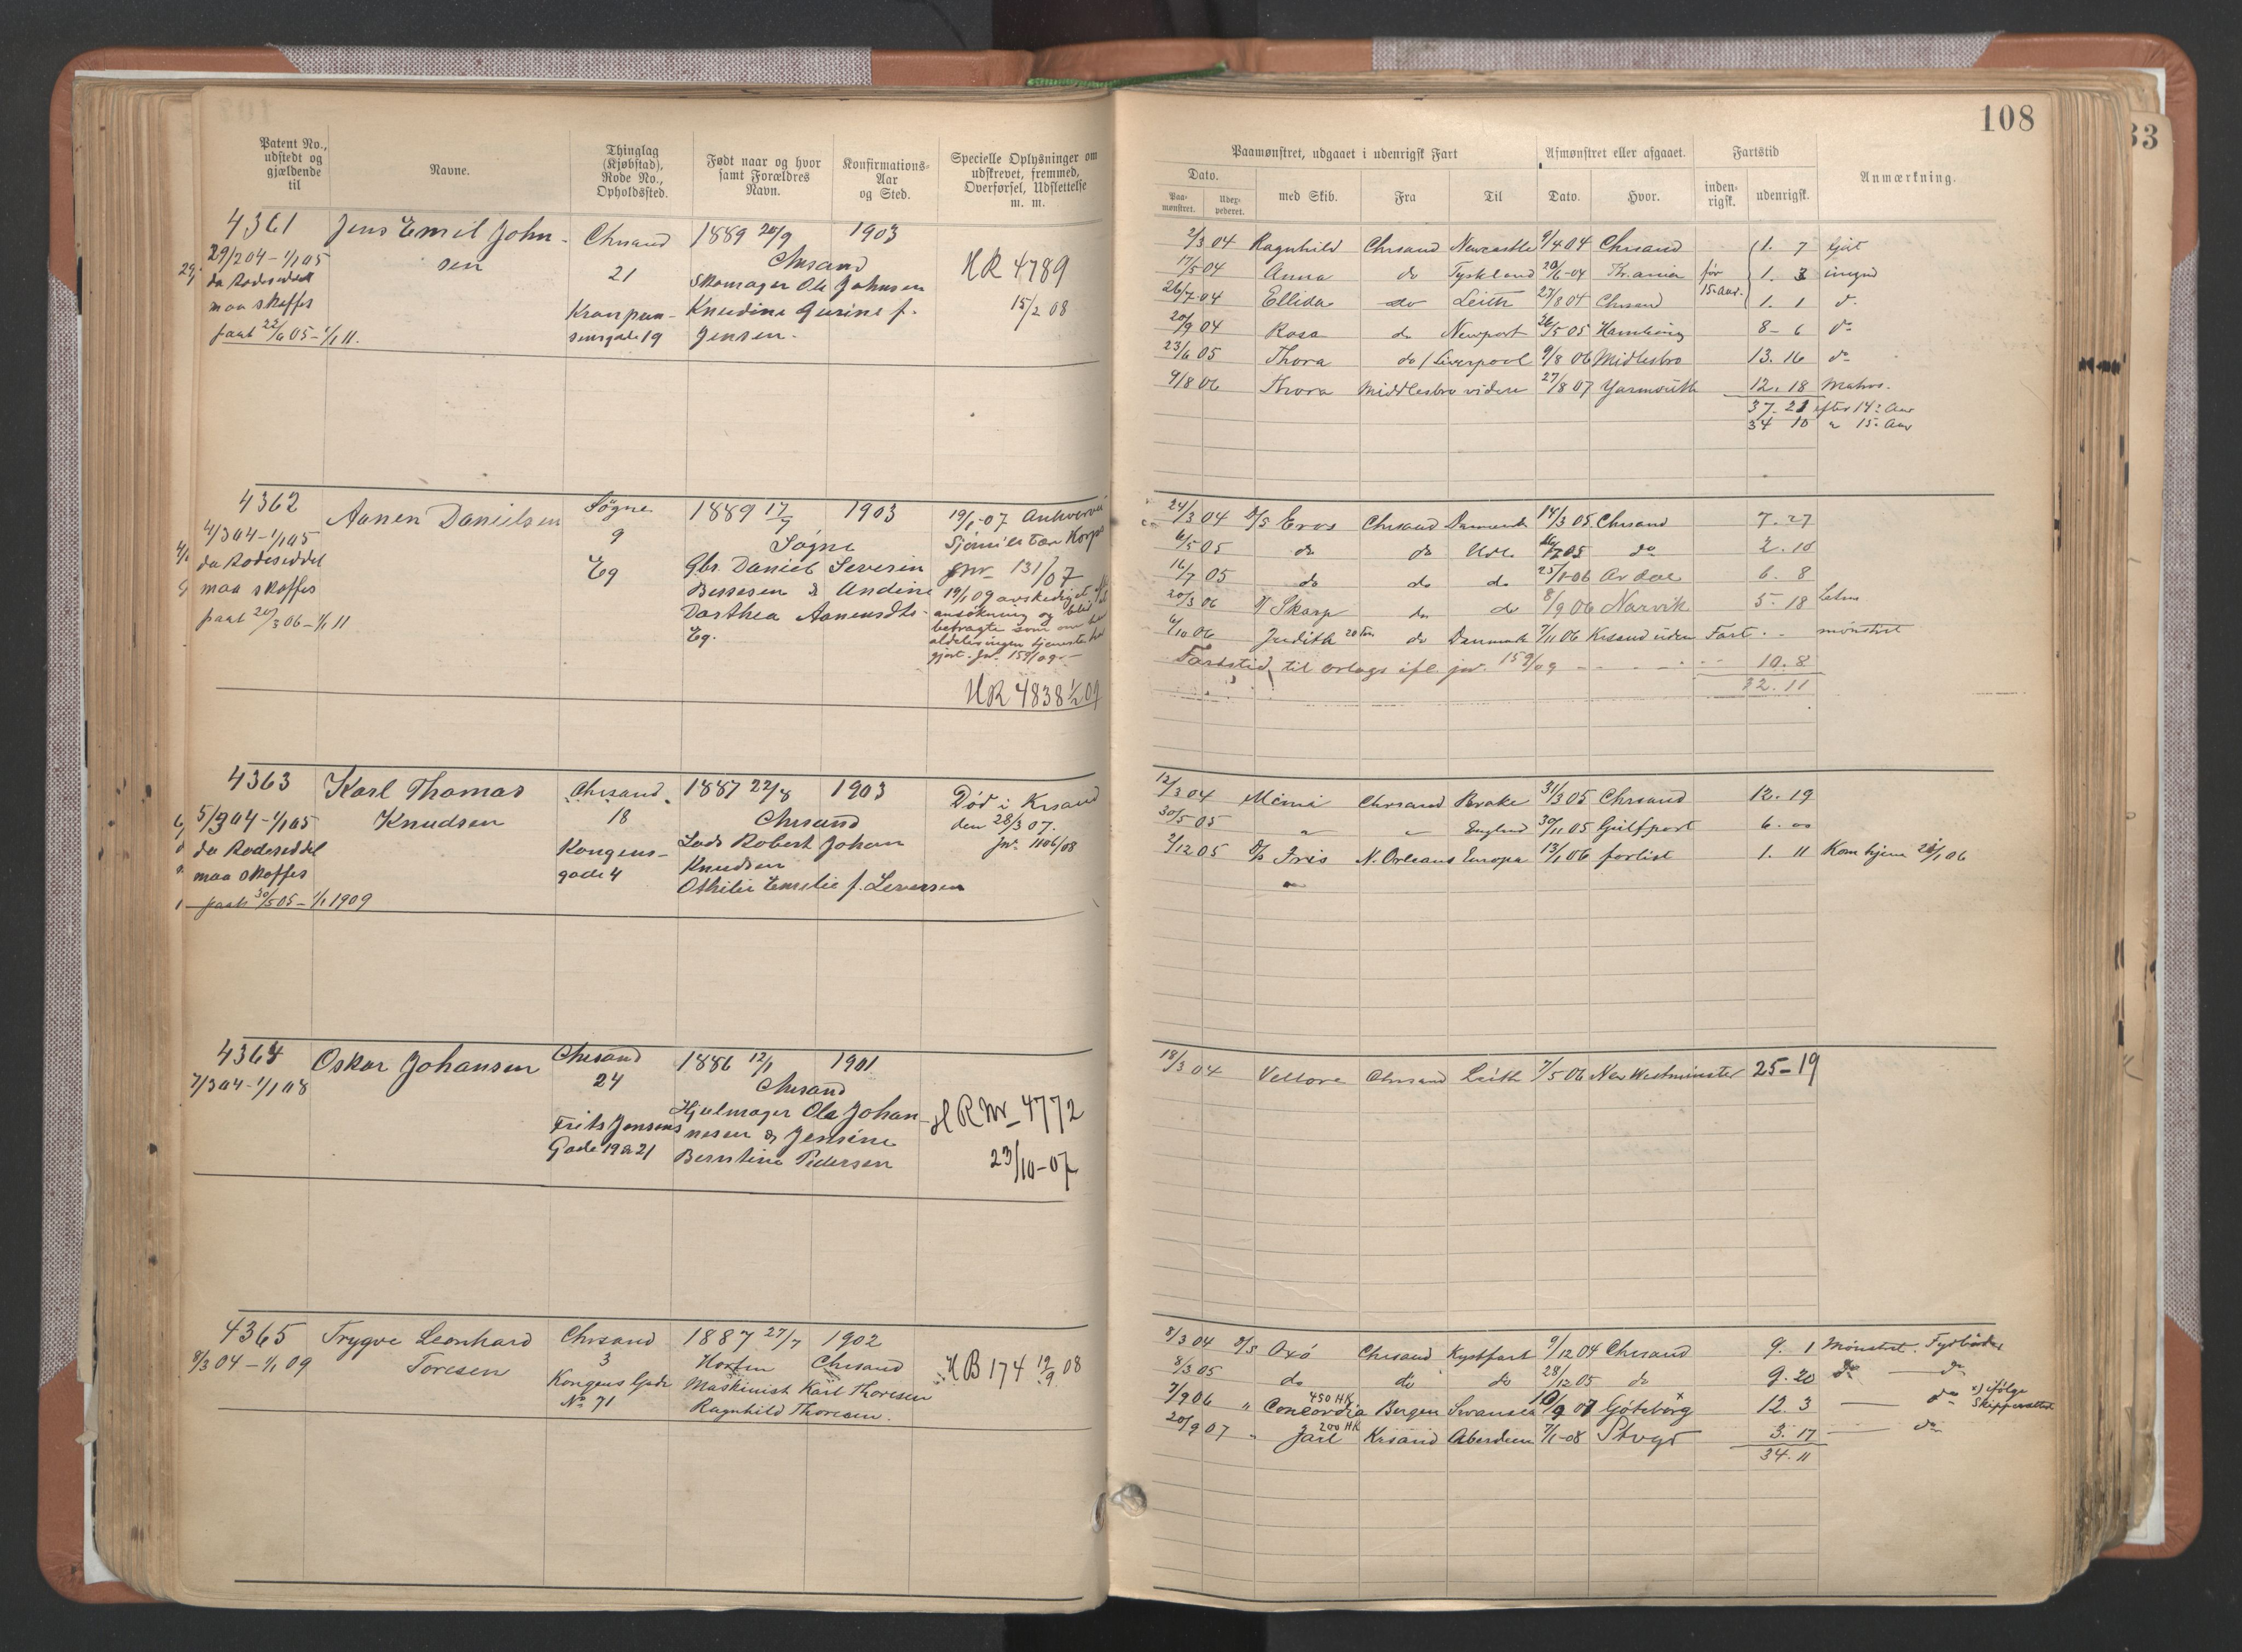 108
33
Patent No., udstedt og gjældende til
Navne.
Thinglag (Kjøbstad), Rode No., Opholdssted.
Født naar og hvor samt Forældres Navn.
Konfirmations-Aar og Sted.
Specielle Oplysninger om udskrevet, fremmed, Overførsel, Udslettelse m. m.
Paamønstret, udgaaet i udenrigsk Fart
Afmønstret eller afgaaet.
Fartstid
Anmærkning.
Dato.
Paa-mønstret.
Udex-pederet.
med Skib.
Fra
Til
Dato.
Hvor.
inden-rigsk.
udenrigsk.
4361 Jens Emil John- Chrsand 1889 20/9 1903
29/2 04 - 1/1 05 sen 21 Chrsand HR 4789
da Rodeseddel Skomager Ole Johnsen
maa skaffes Knudine Gurine f. 15/2 08
paat 22/6 05 - 1/1 11. sensgade 19 Jensen.
2/3 04 Ragnhild Chrsand Newcastle 9/4 04 Chrsand 1. 7
17/5 04 Anna do Tyskland Kr.ania før 1. 3
26/7 04 Ellida do Leith 27/8 04 Chrsand 15 aar. 1. 1 do
20/9 04 Rosa do Newport 26/5 05 Hamburg 8 - 6 do
23/6 05 Thora do Liverpool 9/8 06 Midlesbro 13. 16 do
9/8 06 Thora Middlesbro videre 27/8 07 Yarmouth 12. 18 Matros.
37. 21 efter 14 Aar
34 10 " 15 Aar
4362 Aanen Danielsen Søgne 1889 17/9 1903 19/1-07
4/3 04 - 1/1 05 9 Søgne Korps
da Rodeseddel Eg Gbr. Daniel Severin Jnr 131/07
maa skaffes & Andine 19/1 09 avskediget
paat 20/3 06 - 1/1 11 Dorthea Aanensdtr. ansøkning og
Eg. betragte som om
tjeneste
gjort. Jnr. 159/09
HR 4838 1/2 09
24/3 04 D/S Eros Chrsand Danmark 14/3 05 Chrsand 7. 27
6/5 05 do do Udl. do 2. 10
16/7 05 do do do 25/1 06 Ardal 6. 8
20/3 06 Skarp do do 8/9 06 Narvik 5. 18
6/10 06 Judith do Danmark 7/11 06 Krsand uden Fart mønstret
Fartstid til orlogs ifl. jnr. 159/09 10. 8
32. 11
4363 Karl Thomas Chrsand 1887 22/8 1903 Død i Krsand
5/3 04 - 1/1 05 Knudsen 18 Chrsand den 28/3 07.
da Rodeseddel Kongens- Lods Robert Johan Jnr. 1106/08
maa skaffes gade 4 Knudsen
paat 30/5 05 - 1/1 1909 Othilie Emilie f. Seversen
12/3 04 Mimi Chrsand Brake 31/3 05 Chrsand 12. 19
30/5 05 " " England 30/11 05 Gulfport 6. 00
2/12 05 Iris N. Orleans Europa 13/1 06 forlist 1. 11 Kom hjem 26/1 06
4364 Oskar Johansen Chrsand 1886 12/1 1901
7/3 04 - 1/1 08 24 Chrsand
Hjulmager Ola Johan- HR Nr 4772
Frits Jensens nesen & Jensine
Gade 19 a 21 Berntine Pedersen 23/10-07
18/3 04 Vellore Chrsand Leith 7/5 06 New Westminster 25-19
4365 Trygve Leonhard Chrsand 1887 27/7 1902
8/3 04 - 1/1 09 Toresen 3 Horten Chrsand HB 174 12/9 08
Kongens Gade Maskinist Karl Thoresen
No 71 Ragnhild Thoresen.
8/3 04 D/S Oxö Chrsand Kystfart 9/12 04 Chrsand 9. 1 Mønstret. Fyrbøder
8/3 05 do do do 28/12 05 do 9. 20 do do
7/9 06 " Concordia 450 HK Bergen Swansea 10/9 07 Göteborg x 12. 3 do x) ifølge
20/9 07 " Jarl 200 HK Krsand Aberdeen 7/1-08 Stvgr 3. 17 do
34. 11